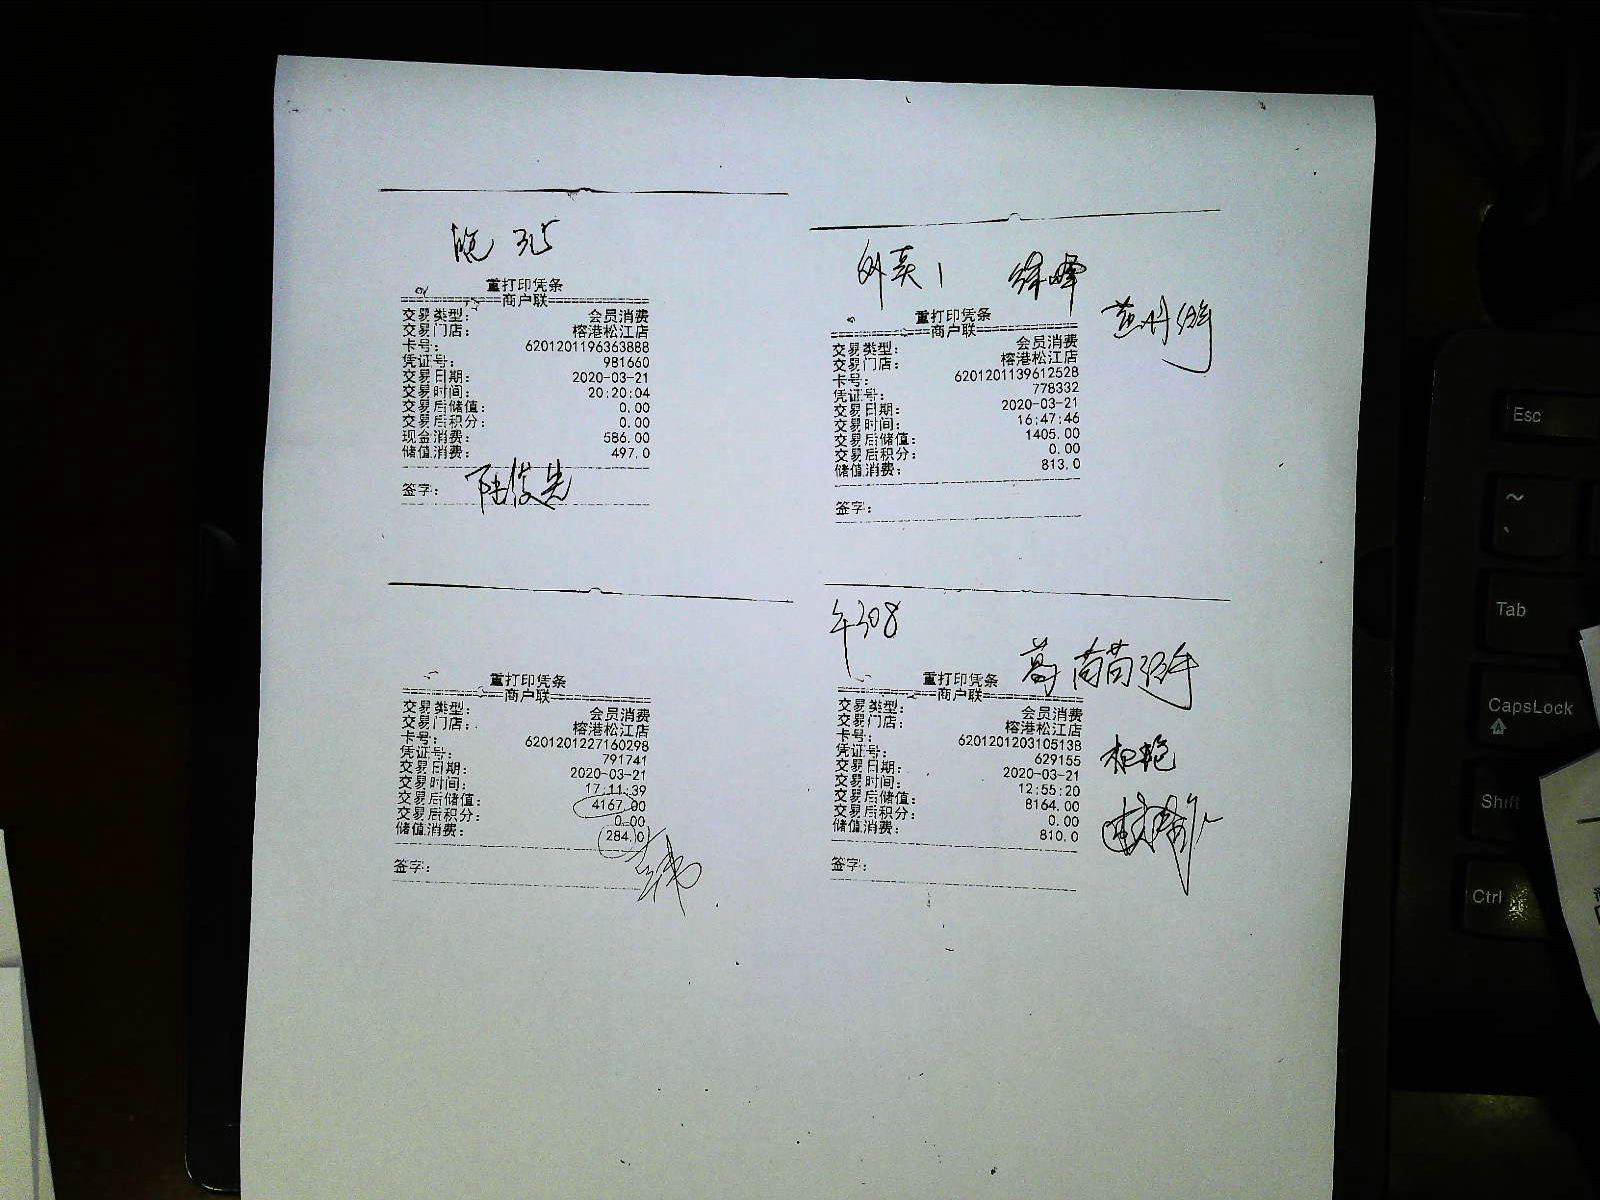 晚 315
重打印凭条
商户联
交易类型： 会员消费
交易门店： 榕港松江店
卡号： 6201201196363888
凭证号： 981660
交易日期： 2020-03-21
交易时间： 20:20:04
交易后储值： 0.00
交易后积分： 0.00
现金消费： 586.00
储值消费： 497.0
签字： 陆俊先
外卖1 徐峰
重打印凭条
商户联
交易类型： 会员消费
交易门店： 榕港松江店
卡号： 6201201139612528
凭证号： 778332
交易日期： 2020-03-21
交易时间： 16:47:46
交易后储值： 1405.00
交易后积分： 0.00
储值消费： 813.0
签字：
重打印凭条
商户联
交易类型： 会员消费
交易门店： 榕港松江店
卡号： 6201201227160298
凭证号： 791741
交易日期： 2020-03-21
交易时间： 17:11:39
交易后储值： 4167.00
交易后积分： 0.00
储值消费： 284.0
签字：
午308
重打印凭条
商户联
交易类型： 会员消费
交易门店： 榕港松江店
卡号： 6201201203105138
凭证号： 629155
交易日期： 2020-03-21
交易时间： 12:55:20
交易后储值： 8164.00
交易后积分： 0.00
储值消费： 810.0
签字：
Esc
~
Tab
CapsLock
Shift
Ctrl